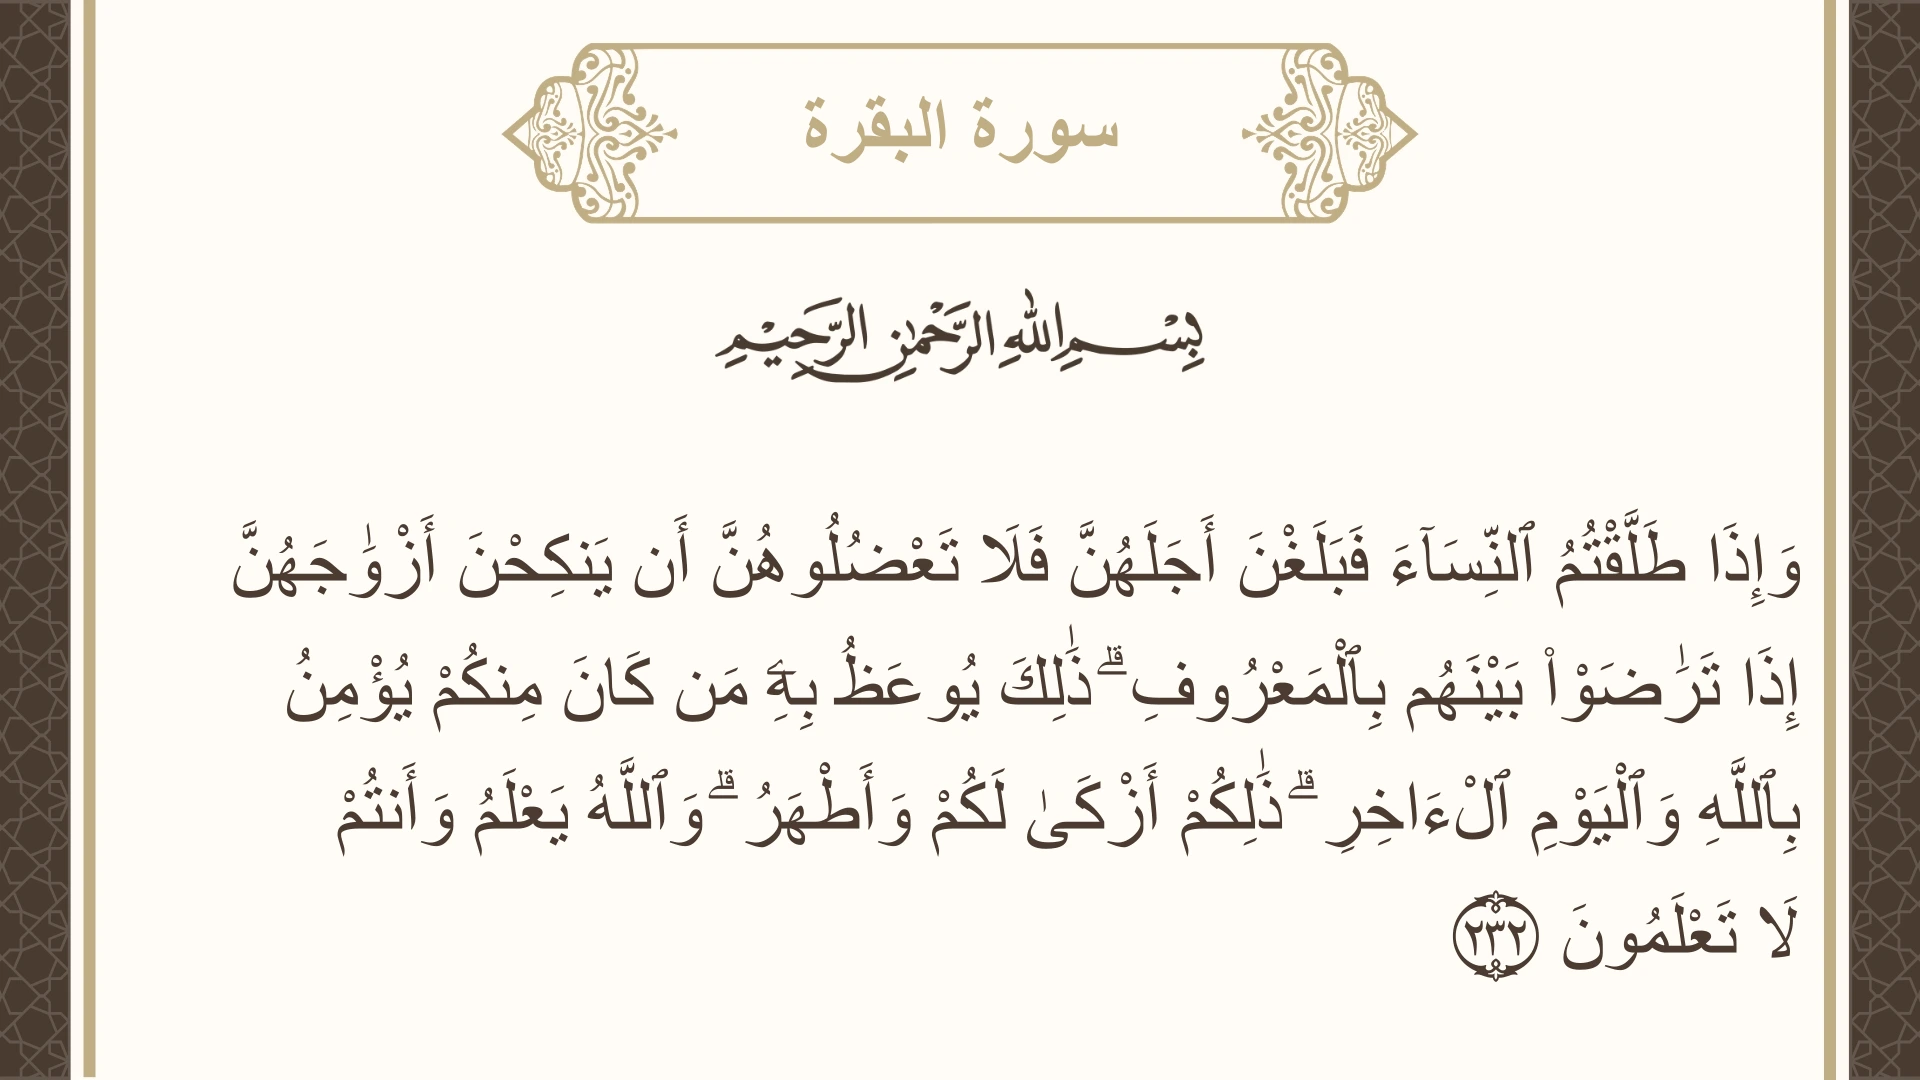 سورة البقرة
بِسْمِ اللهِ الرَّحْمٰنِ الرَّحِيْمِ
وَإِذَا طَلَّقْتُمُ ٱلنِّسَآءَ فَبَلَغْنَ أَجَلَهُنَّ فَلَا تَعْضُلُوهُنَّ أَن يَنكِحْنَ أَزْوَٰجَهُنَّ
إِذَا تَرَٰضَوْا۟ بَيْنَهُم بِٱلْمَعْرُوفِ ۗ ذَٰلِكَ يُوعَظُ بِهِۦ مَن كَانَ مِنكُمْ يُؤْمِنُ
بِٱللَّهِ وَٱلْيَوْمِ ٱلْءَاخِرِ ۗ ذَٰلِكُمْ أَزْكَىٰ لَكُمْ وَأَطْهَرُ ۗ وَٱللَّهُ يَعْلَمُ وَأَنتُمْ
لَا تَعْلَمُونَ ٢٣٢